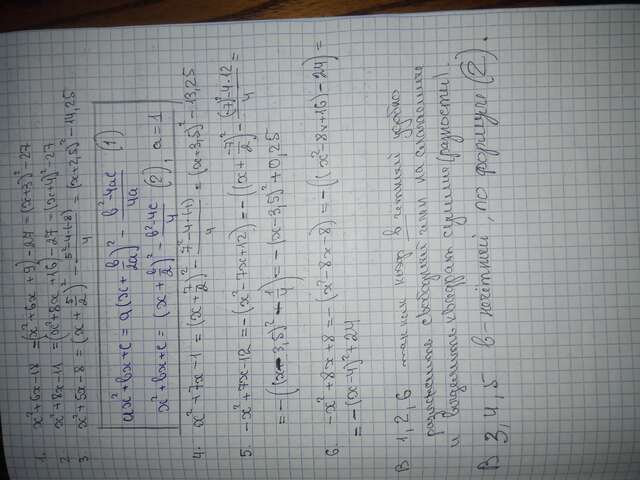 1. x²+6x-18 = (x²+6x+9)-27 = (x+3)²-27
2 x²+8x-11 = (x²+8x+16)-27 = (x+4)²-27
3 x²+5x-8 = (x+5/2)² - 5²-4·(-8)/4 = (x+2,5)²-14,25
ax²+bx+c = a(x+b/2a)² - b²-4ac/4a (1)
x²+bx+c = (x+b/2)² - b²-4c/4 (2), a=1
4. x²+7x-1 = (x+7/2)² - 7²-4·(-1)/4 = (x+3,5)²-13,25
5. -x²+7x-12 = -(x²-7x+12) = -((x+-7/2)² - (-7)²-4·12/4 =
= -((x-3,5)²-1/4) = -(x-3,5)²+0,25
6. -x²+8x+8 = -(x²-8x-8) = -((x²-8x+16)-24) =
= -(x-4)²+24
В 1,2,6 коэф в четный удобно
разложить свободный член на слагаемые
и выделить квадрат суммы (разности).
В 3,4,5 в-нечётный, по формуле (2).